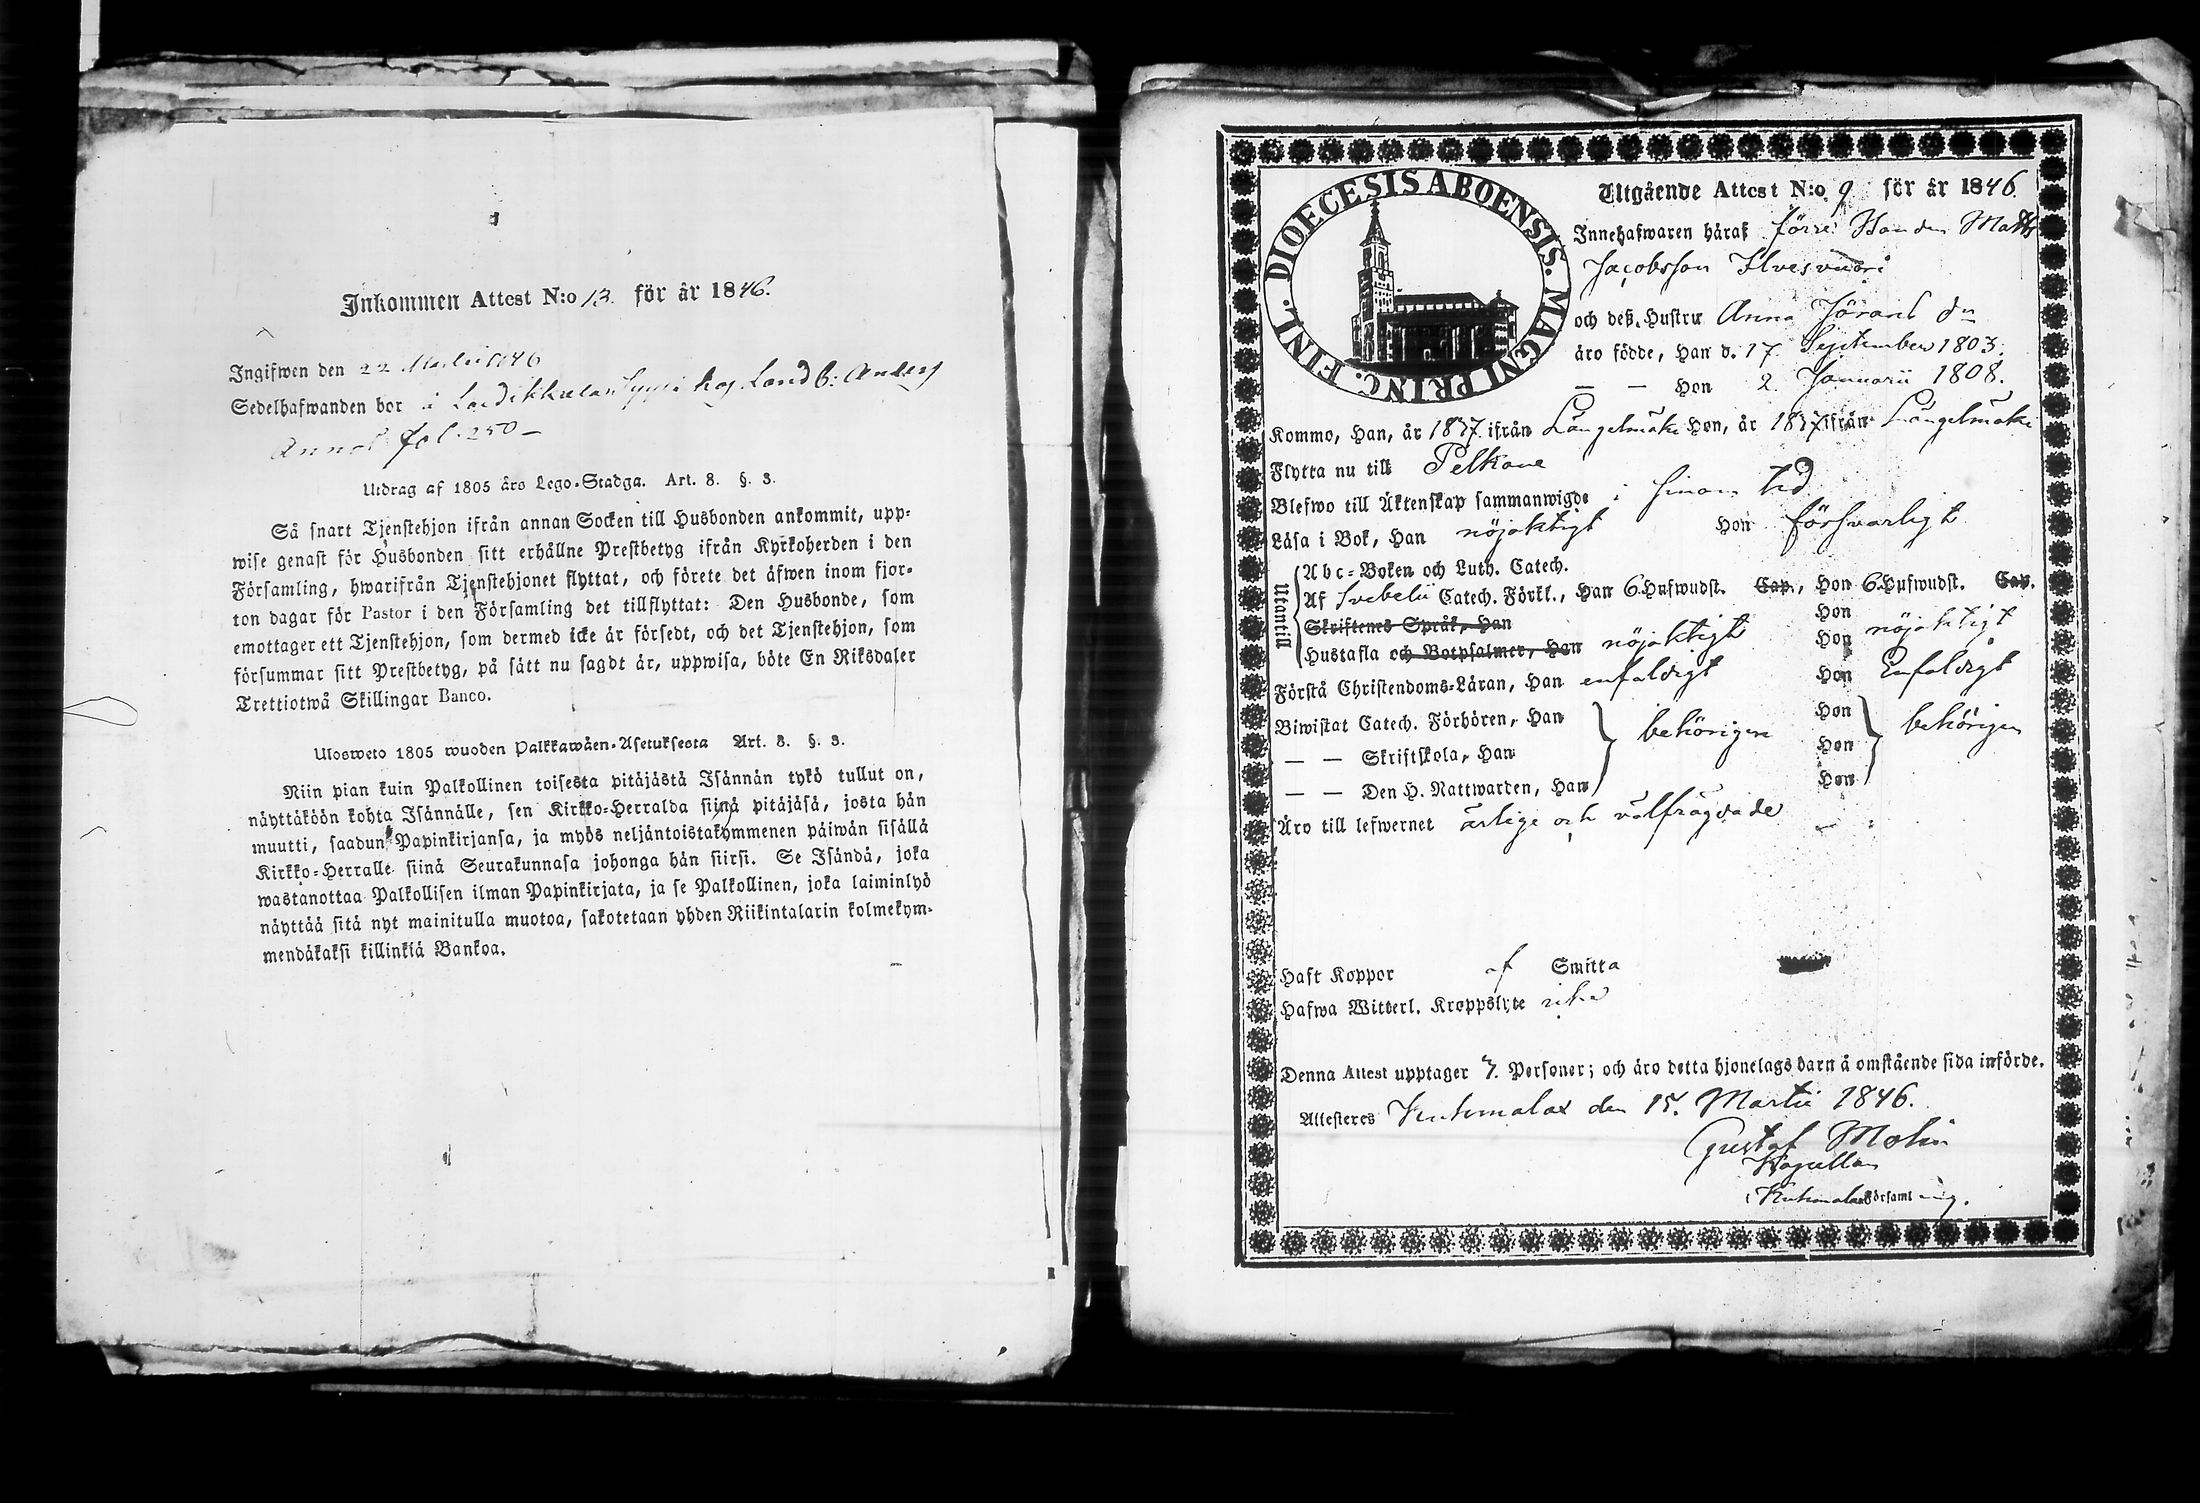 Inkommen Attest N:o 13. för år 1846.
Ingifwen den 22 Martii 1846
Sedelhafwanden bor i
fol. 250 –
Utdrag af 1805 års Lego-Stadga. Art. 8. §. 3.
Så snart Tjenstehjon ifrån annan Socken till Husbonden ankommit, upp-
wise genast för Husbonden sitt erhållne Prestbetyg ifrån Kyrkoherden i den
Församling, hwarifrån Tjenstehjonet flyttat, och förete det äfwen inom fjor-
ton dagar för Pastor i den Församling det tillflyttat: Den Husbonde, som
emottager ett Tjenstehjon, som dermed icke är försedt, och det Tjenstehjon, som
försummar sitt Prestbetyg, på sätt nu sagdt är, uppwisa, böte En Riksdaler
Trettiotwå Skillingar Banco.
Ulosweto 1805 wuoden Palkkawäen-Asetuksesta Art. 8. §. 3.
Niin pian kuin Palkollinen toisesta pitäjästä Isännän tykö tullut on,
näyttäköön kohta Isännälle, sen Kirkko-Herralda siinä pitäjäsä, josta hän
muutti, saadun Papinkirjansa, ja myös neljäntoistakymmenen päiwän sisällä
Kirkko-Herralle siinä Seurakunnasa johonga hän siirsi. Se Isändä, joka
wastanottaa Palkollisen ilman Papinkirjata, ja se Palkollinen, joka laiminlyö
näyttää sitä nyt mainitulla muotoa, sakotetaan yhden Riikintalarin kolmekym-
mendäkaksi killinkiä Bankoa.
DIOECESIS ABOENSIS. MAGNI PRINC. FINL.
Utgående Attest N:o 9 för år 1846.
Innehafwaren häraf förre Bonden Matts
Jacobsson Ilvesvuori
och deß Hustru Anna Jörans dr
äro födde, Han d. 17 September 1803.
— — Hon 2 Januarii 1808.
Kommo, Han, år 1837 ifrån Längelmäki Hon, år 1837 ifrån Längelmäki
Flytta nu till Pelkäne
Blefwo till Äktenskap sammanwigde i sinom tid
Läsa i Bok, Han nöjaktigt Hon försvarligt
Utantill
Abc-Boken och Luth. Catech.
Af Svebelii Catech. Förkl., Han 6 Hufwudst. Cap., Hon 6 Hufwudst. Cap.
Skriftenes Språk, Han Hon
Hustafla och Botpsalmer, Han nöjaktigt Hon nöjaktigt
Förstå Christendoms-Läran, Han enfaldigt Hon Enfaldigt
Biwistat Catech. Förhören, Han behörigen Hon behörigen
— — Skriftskola, Han Hon
— — Den H. Nattwarden, Han Hon
Äro till lefwernet ärlige och välfrägdade
Haft Koppor af Smitta
Hafwa Witterl. Kroppslyte icke
Denna Attest upptager 7. Personer; och äro detta hjonelags barn å omstående sida införde.
Attesteres Kuhmalax den 15. Martii 1846.
Gustaf Molin
Kapellan
i Kuhmalax Församling.